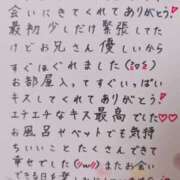 会いにきてくれてありがとう!
最初少しだけ緊張してた
けどお兄さん優しいから
すぐほぐれました(ﾖﾛｼ)
お部屋入ってすぐいっぱい
キスしてくれてありがとう!
エチエチなキス最高でした♡♡
お風呂やベットでも気持
ちいいこと たくさんできて
幸せでした(>ω<)またお会い
できる日を